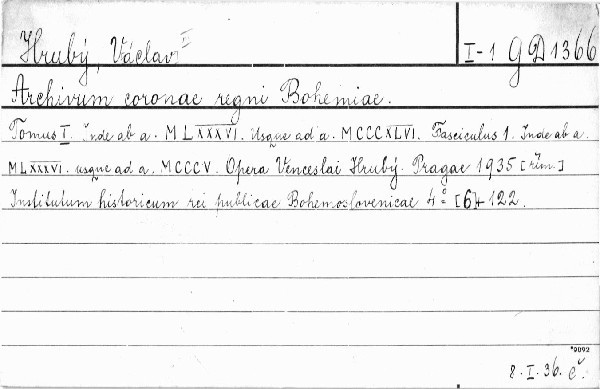 Hrubý, Václav I I-1 GD1366
Archivum coronae regni Bohemiae.
Tomus I. Inde ab a. MLXXXVI. Usque ad a. MCCCXLVI. Fasciculus 1. Inde ab a.
MLXXXVI. usque ad a. MCCCV. Opera Venceslai Hrubý. Pragae 1935 [řím.]
Institutum historicum rei publicae Bohemoslovenicae 4° [6]+122.
*9092
8. I. 36. č.